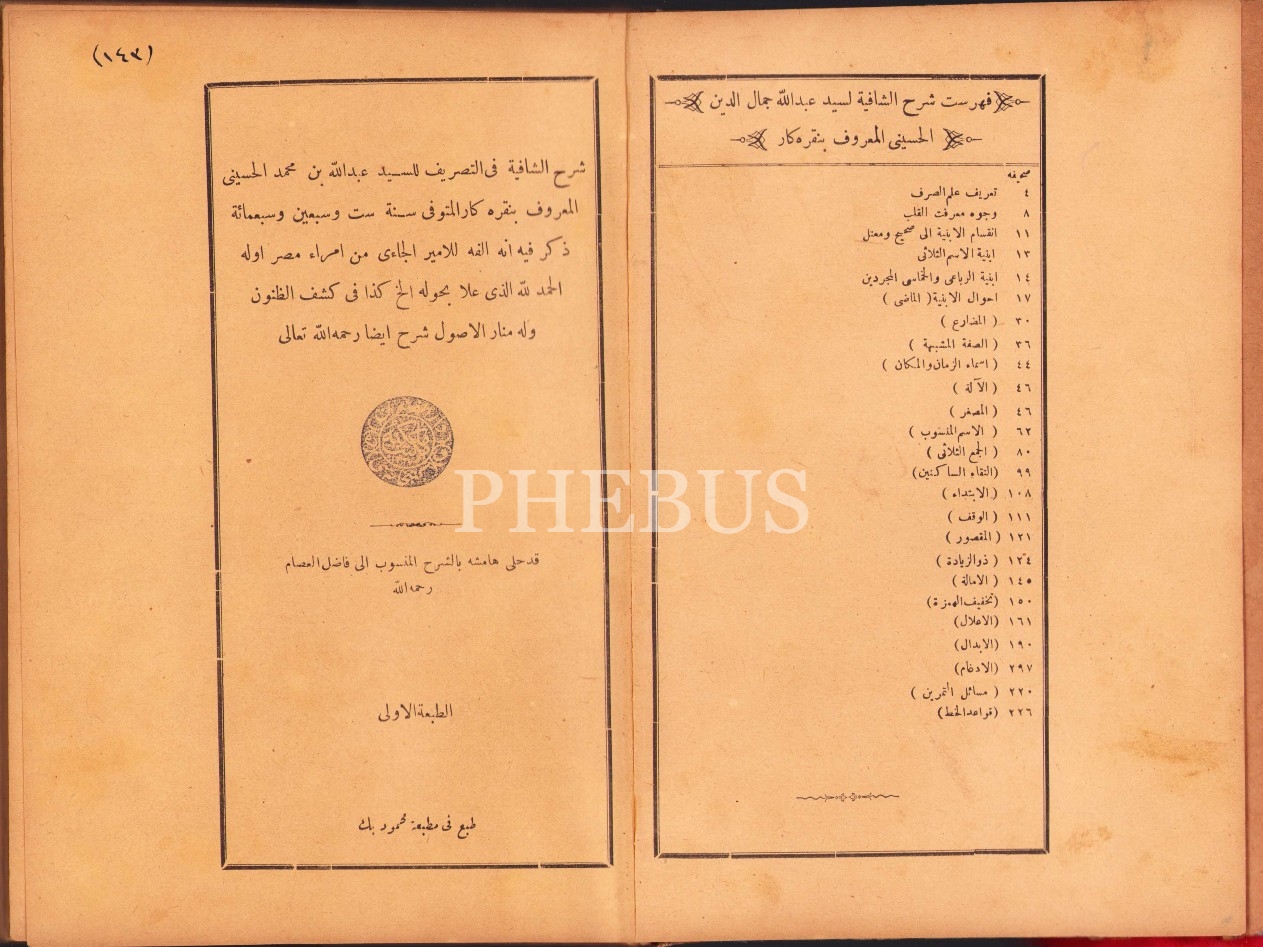 فهرست شرح الشافية لسيد عبدالله جمال الدين
الحسينى المعروف بنقره كار
صحيفه
٤ تعريف علم الصرف
٨ وجوه معرفت القلب
١١ انقسام الابنية الى صحيح ومعتل
١٣ ابنية الاسم الثلاثى
١٤ ابنية الرباعى والخماسى المجردين
١٧ احوال الابنية ( الماضى )
٣٠ ( المضارع )
٣٦ ( الصفة المشبهة )
٤٤ ( اسماء الزمان والمكان )
٤٦ ( الآلة )
٤٦ ( المصغر )
٦٢ ( الاسم المنسوب )
٨٠ ( الجمع الثلاثى )
٩٩ (التقاء الساكنين)
١٠٨ ( الابتداء )
١١١ ( الوقف )
١٢١ ( المقصور )
١٢٤ ( ذوالزيادة )
١٤٥ ( الامالة )
١٥٠ (تخفيف الهمزة)
١٦١ (الاعلال)
١٩٠ (الابدال)
٢٩٧ (الادغام)
٢٢٠ ( مسائل التمرين )
٢٢٦ (قواعد الخط)
(١٤٣)
شرح الشافية فى التصريف للسيد عبدالله بن محمد الحسينى
المعروف بنقره كار المتوفى سنة ست وسبعين وسبعمائة
ذكر فيه انه الفه للامير الجاءى من امراء مصر اوله
الحمد لله الذى علا بحوله الخ كذا فى كشف الظنون
وله منار الاصول شرح ايضا رحمه الله تعالى
قد حلى هامشه بالشرح المنسوب الى فاضل العصام
رحمه الله
الطبعة الاولى
طبع فى مطبعة محمود بك
PHEBUS